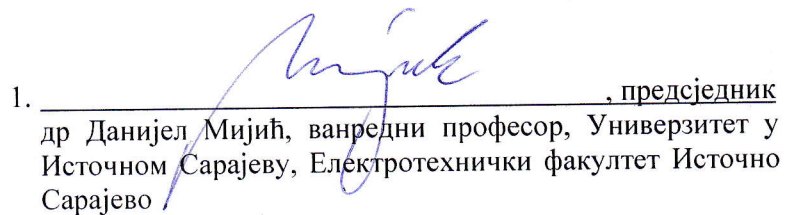 1. , предсједник
др Данијел Мијић, ванредни професор, Универзитет у
Источном Сарајеву, Електротехнички факултет Источно
Сарајево